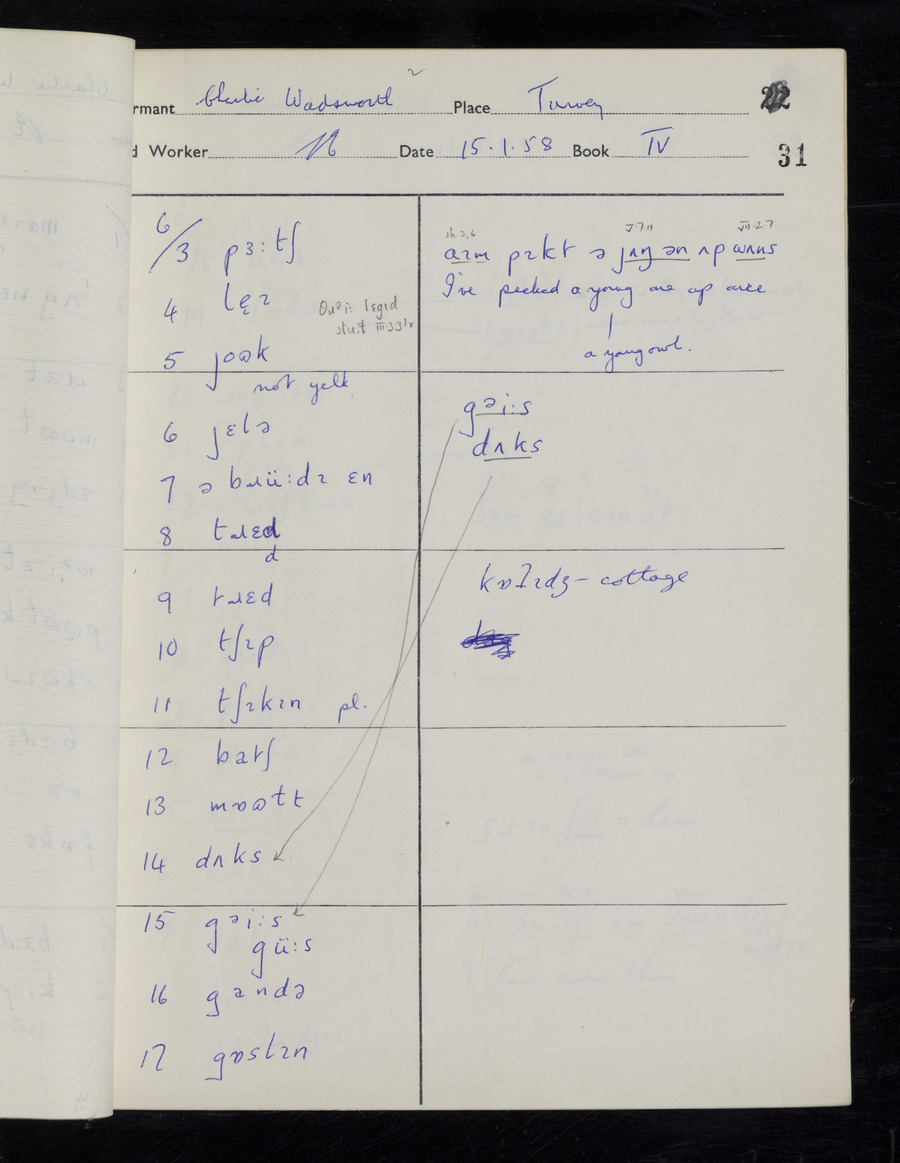 rmant Charlie Wadsworth Place Turvey 22
d Worker Date 15.1.58 Book IV 31
6/3 pɜ:tʃ
4 lɛ̣ɪ
5 joʊk
not yelk
6 jɛlə
7 ə bɹüːdɪ ɛn
8 tɹɛd
d
9 tɹɛd
10 tʃɪp
11 tʃɪkɪn pl.
12 batʃ
13 mɒʊtt
14 dʌks
15 gəiːs
güːs
16 gandə
17 gɒslɪn
VII.2.7
aɪm pɪkt ə jʌŋ ən ʌp wʌns
I've picked a young one up once
a young owl.
gəiːs
dʌks
kɒʔɪdʒ – cottage